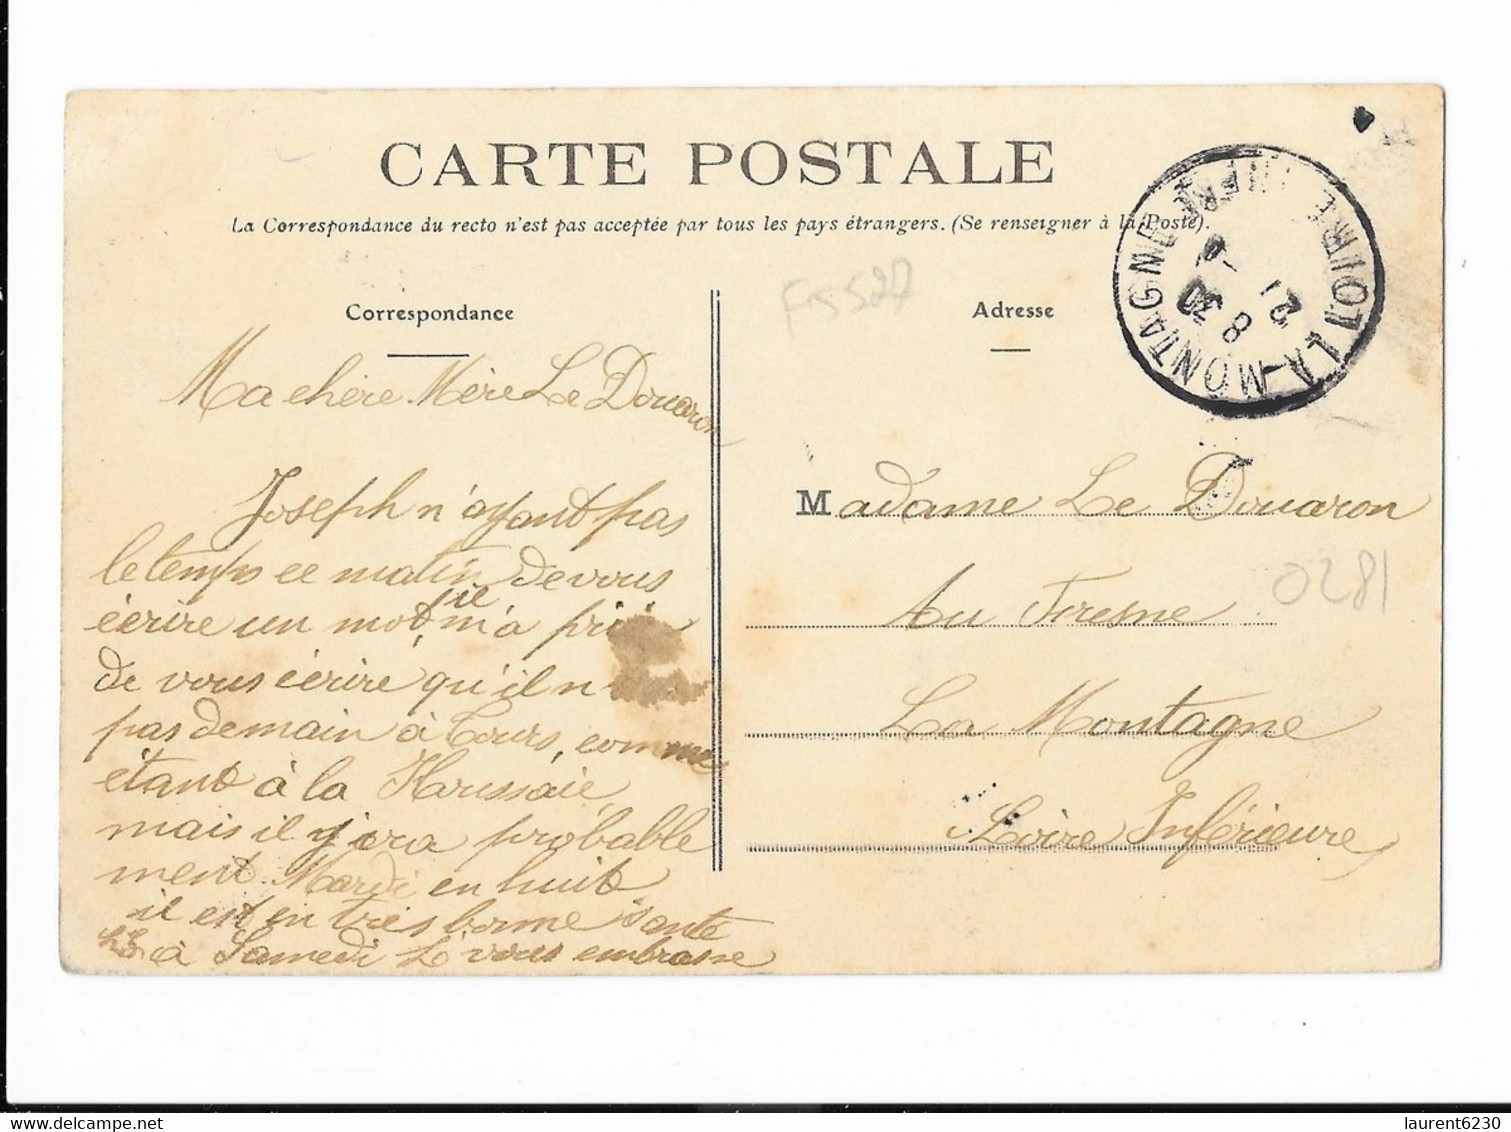 CARTE POSTALE
La Correspondance du recto n'est pas acceptée par tous les pays étrangers. (Se renseigner à la Poste).
Correspondance
Ma chère Mère Le Douaron
Joseph n'ayant pas
le temps ce matin de vous
écrire un mot, il m'a prié
de vous écrire qu'il n
pas demain à Tours, comme
étant à la Haussaie
mais il y ira probable
ment Mardi en huit.
il est en très bonne santé
à Samedi vous embrasse
Adresse
Madame Le Douaron
Au Fresne
La Montagne
Loire Inférieure
F5527
0281
LA MONTAGNE
LOIRE INFRE
8 30
21
laurent6230